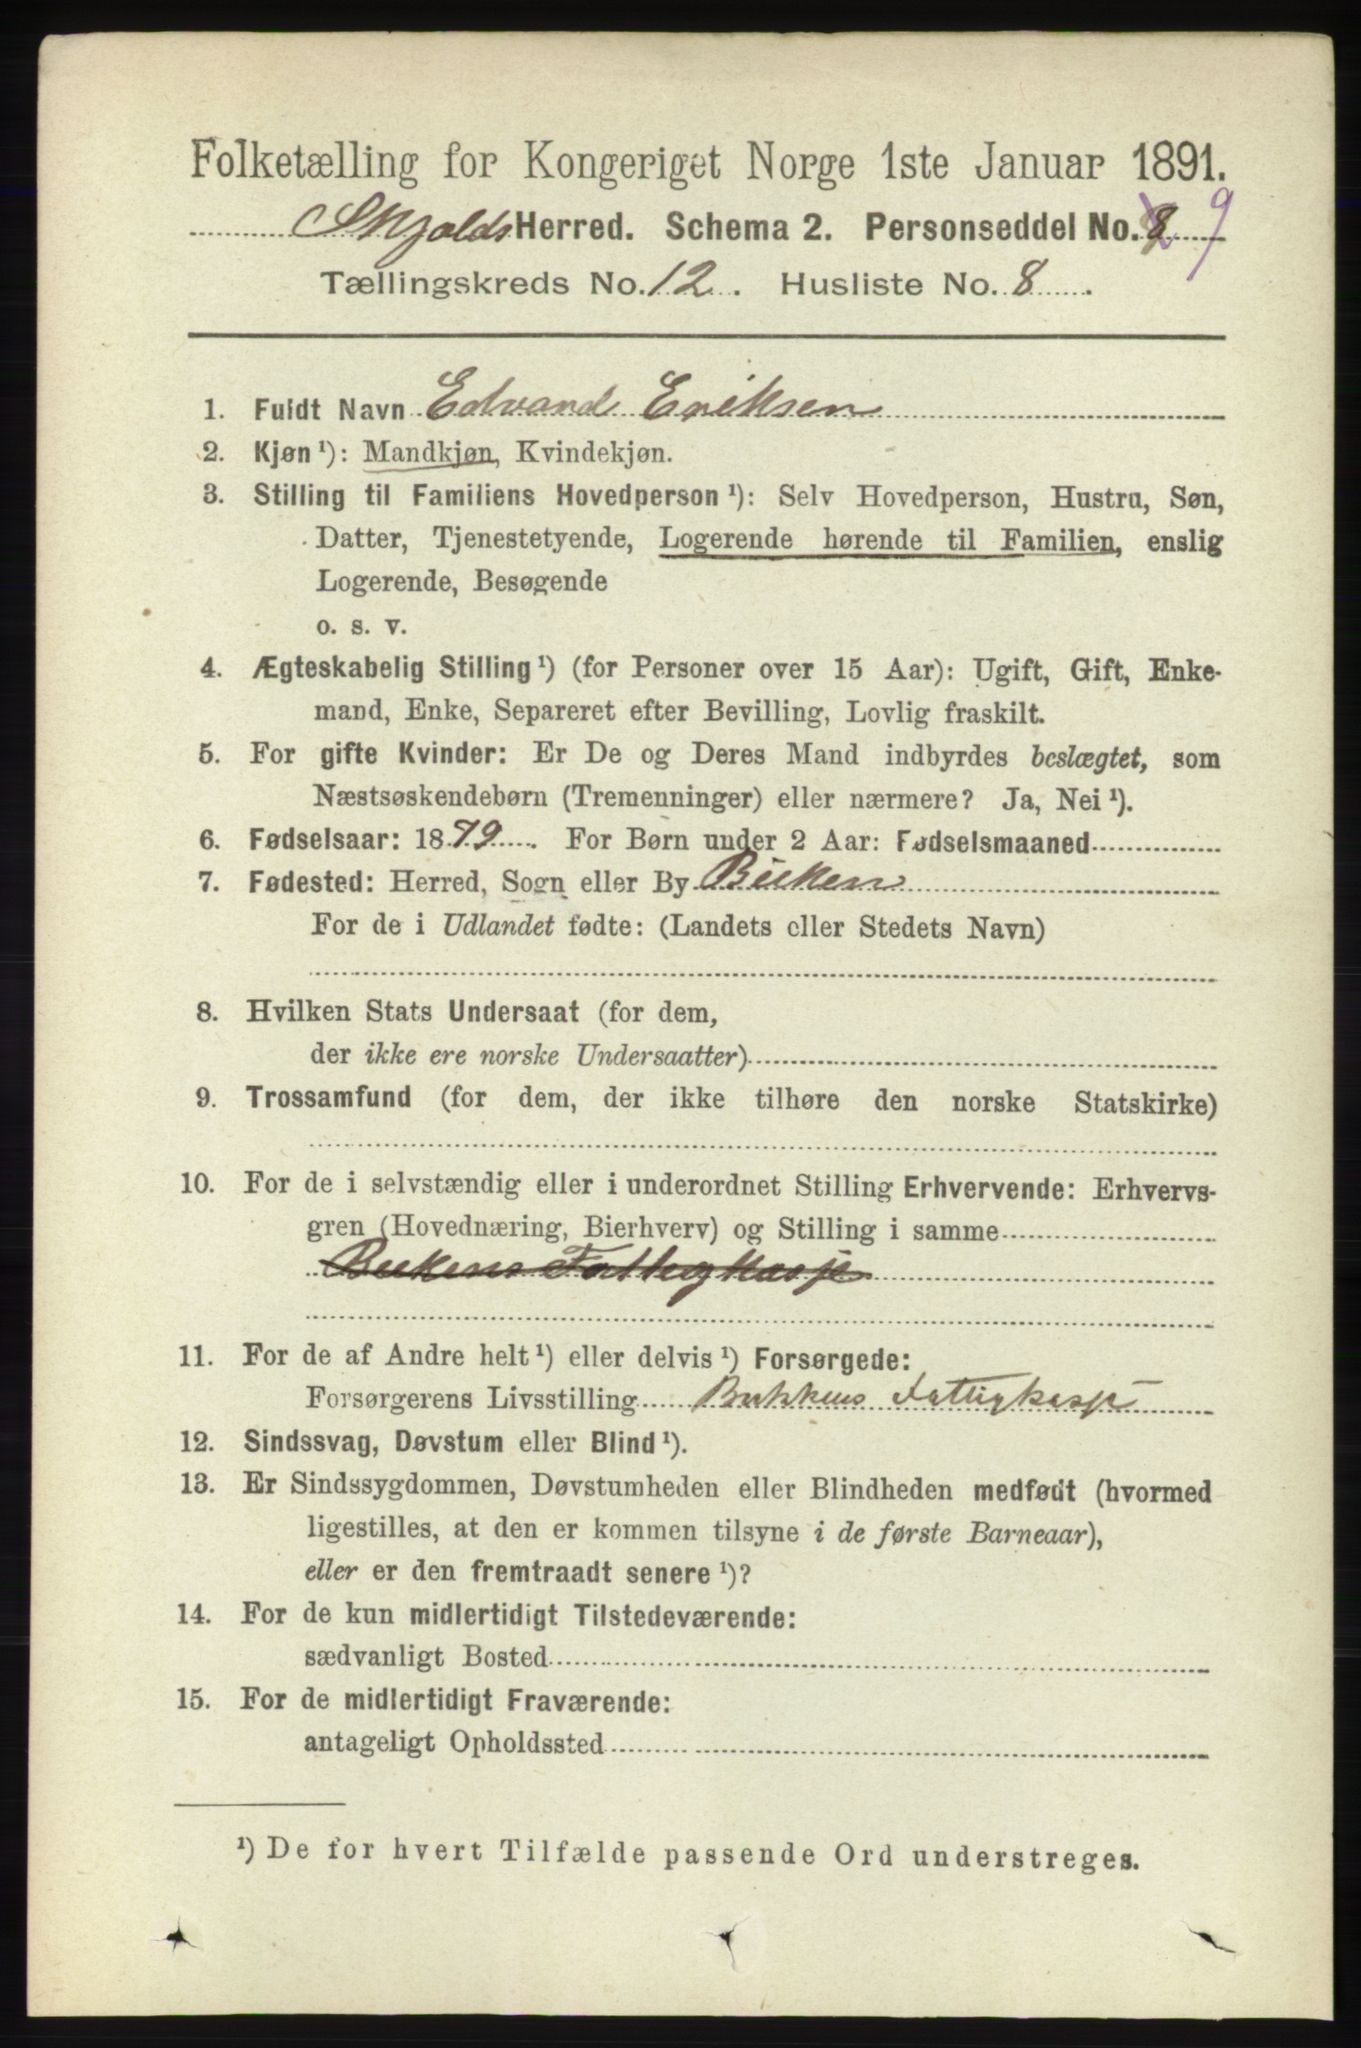 Folketælling for Kongeriget Norge 1ste Januar 1891.
Skjolds Herred. Schema 2. Personseddel No. 8 9
Tællingskreds No. 12. Husliste No. 8.
1. Fuldt Navn Edvard Eriksen
2. Kjøn ¹): Mandkjøn, Kvindekjøn.
3. Stilling til Familiens Hovedperson ¹): Selv Hovedperson, Hustru, Søn,
Datter, Tjenestetyende, Logerende hørende til Familien, enslig
Logerende, Besøgende
o. s. v.
4. Ægteskabelig Stilling ¹) (for Personer over 15 Aar): Ugift, Gift, Enke-
mand, Enke, Separeret efter Bevilling, Lovlig fraskilt.
5. For gifte Kvinder: Er De og Deres Mand indbyrdes beslægtet, som
Næstsøskendebørn (Tremenninger) eller nærmere? Ja, Nei ¹).
6. Fødselsaar: 1879. For Børn under 2 Aar: Fødselsmaaned
7. Fødested: Herred, Sogn eller By Bukken
For de i Udlandet fødte: (Landets eller Stedets Navn)
8. Hvilken Stats Undersaat (for dem,
der ikke ere norske Undersaatter)
9. Trossamfund (for dem, der ikke tilhøre den norske Statskirke)
10. For de i selvstændig eller i underordnet Stilling Erhvervende: Erhvervs-
gren (Hovednæring, Bierhverv) og Stilling i samme
Bukkens Fattigkasse
11. For de af Andre helt ¹) eller delvis ¹) Forsørgede:
Forsørgerens Livsstilling Bukkens Fattigkasse
12. Sindssvag, Døvstum eller Blind ¹).
13. Er Sindssygdommen, Døvstumheden eller Blindheden medfødt (hvormed
ligestilles, at den er kommen tilsyne i de første Barneaar),
eller er den fremtraadt senere ¹)?
14. For de kun midlertidigt Tilstedeværende:
sædvanligt Bosted
15. For de midlertidigt Fraværende:
antageligt Opholdssted
¹) De for hvert Tilfælde passende Ord understreges.